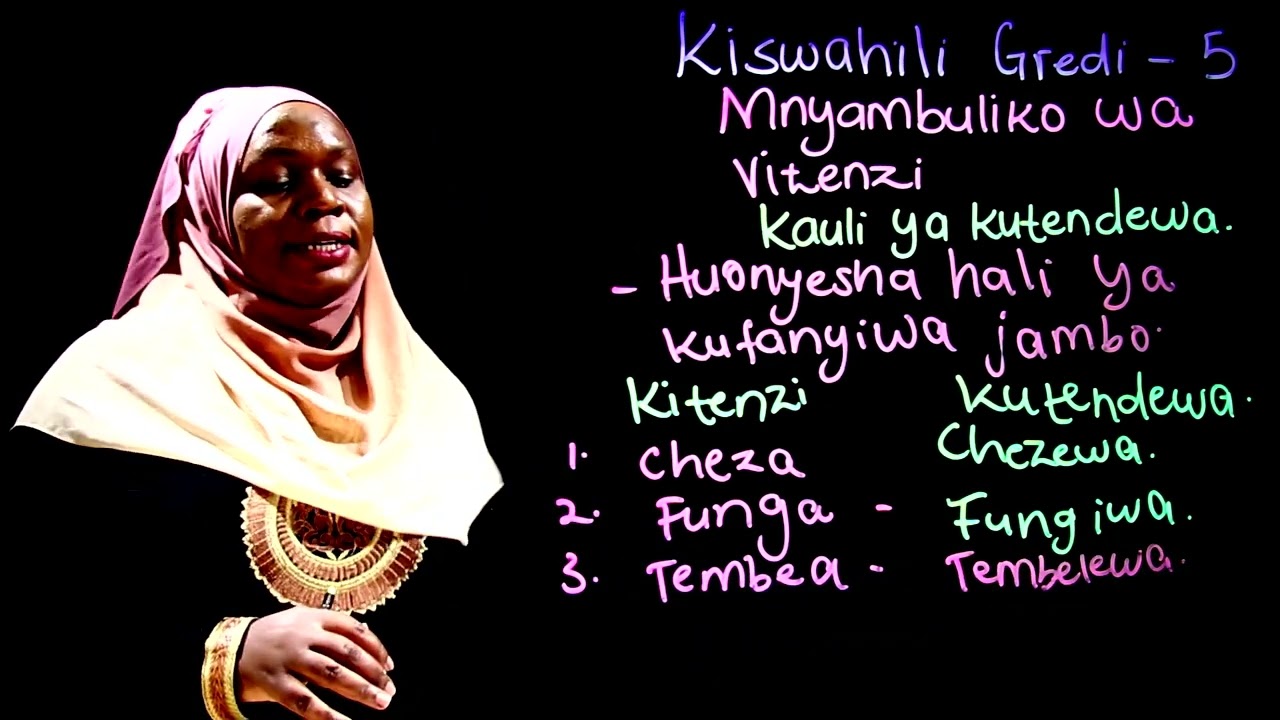 Kiswahili Gredi - 5
Mnyambuliko wa
Vitenzi
Kauli ya kutendewa.
- Huonyesha hali ya
kufanyiwa jambo.
Kitenzi kutendewa.
1. cheza Chezewa.
2. Funga - Fungiwa.
3. Tembea - Tembelewa.